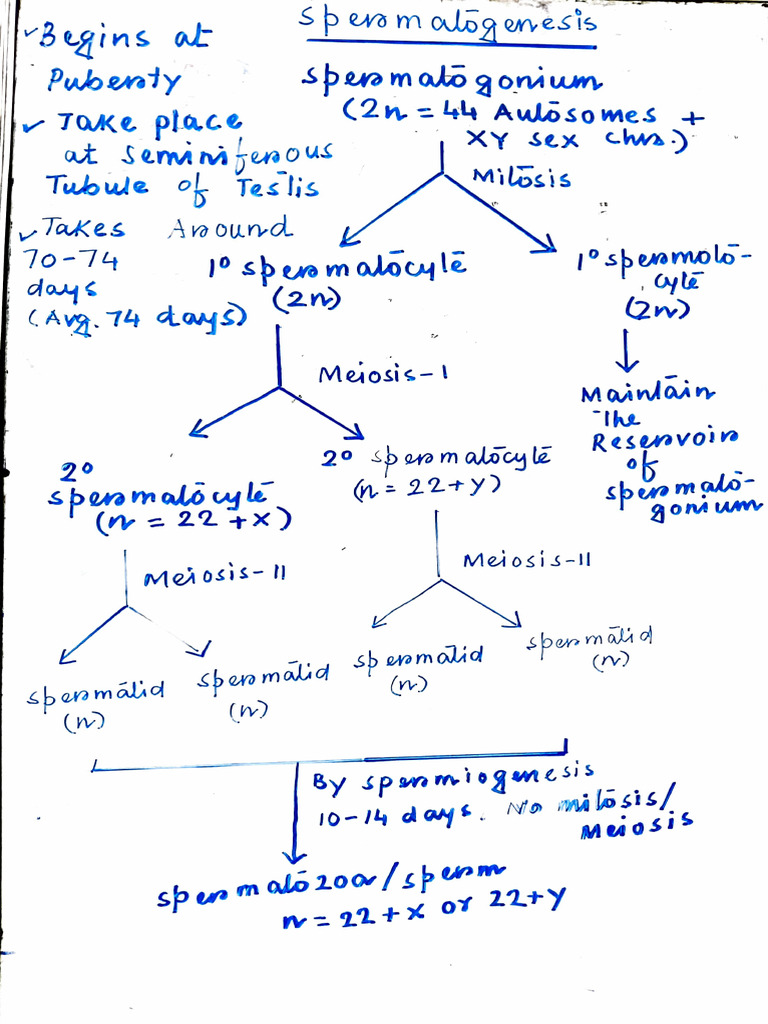 Spermatogenesis
✓Begins at
Puberty
✓ Take place
at seminiferous
Tubule of Testis
✓Takes Around
70-74
days
(Avg. 74 days)
spermatogonium
(2n = 44 Autosomes +
XY sex chrs.)
Mitosis
1° spermatocyte
(2n)
1° spermoto-
cyte
(2n)
Maintain
The
Reservoir
of
spermato-
gonium
Meiosis-I
2°
spermatocyte
(n = 22 + x)
2° spermatocyte
(n = 22+y)
Meiosis-II
Meiosis-II
spermatid
(n)
spermatid
(n)
spermatid
(n)
spermatid
(n)
By spermiogenesis
10-14 days. No mitosis/
Meiosis
spermatozoa/sperm
n = 22 + x or 22+y